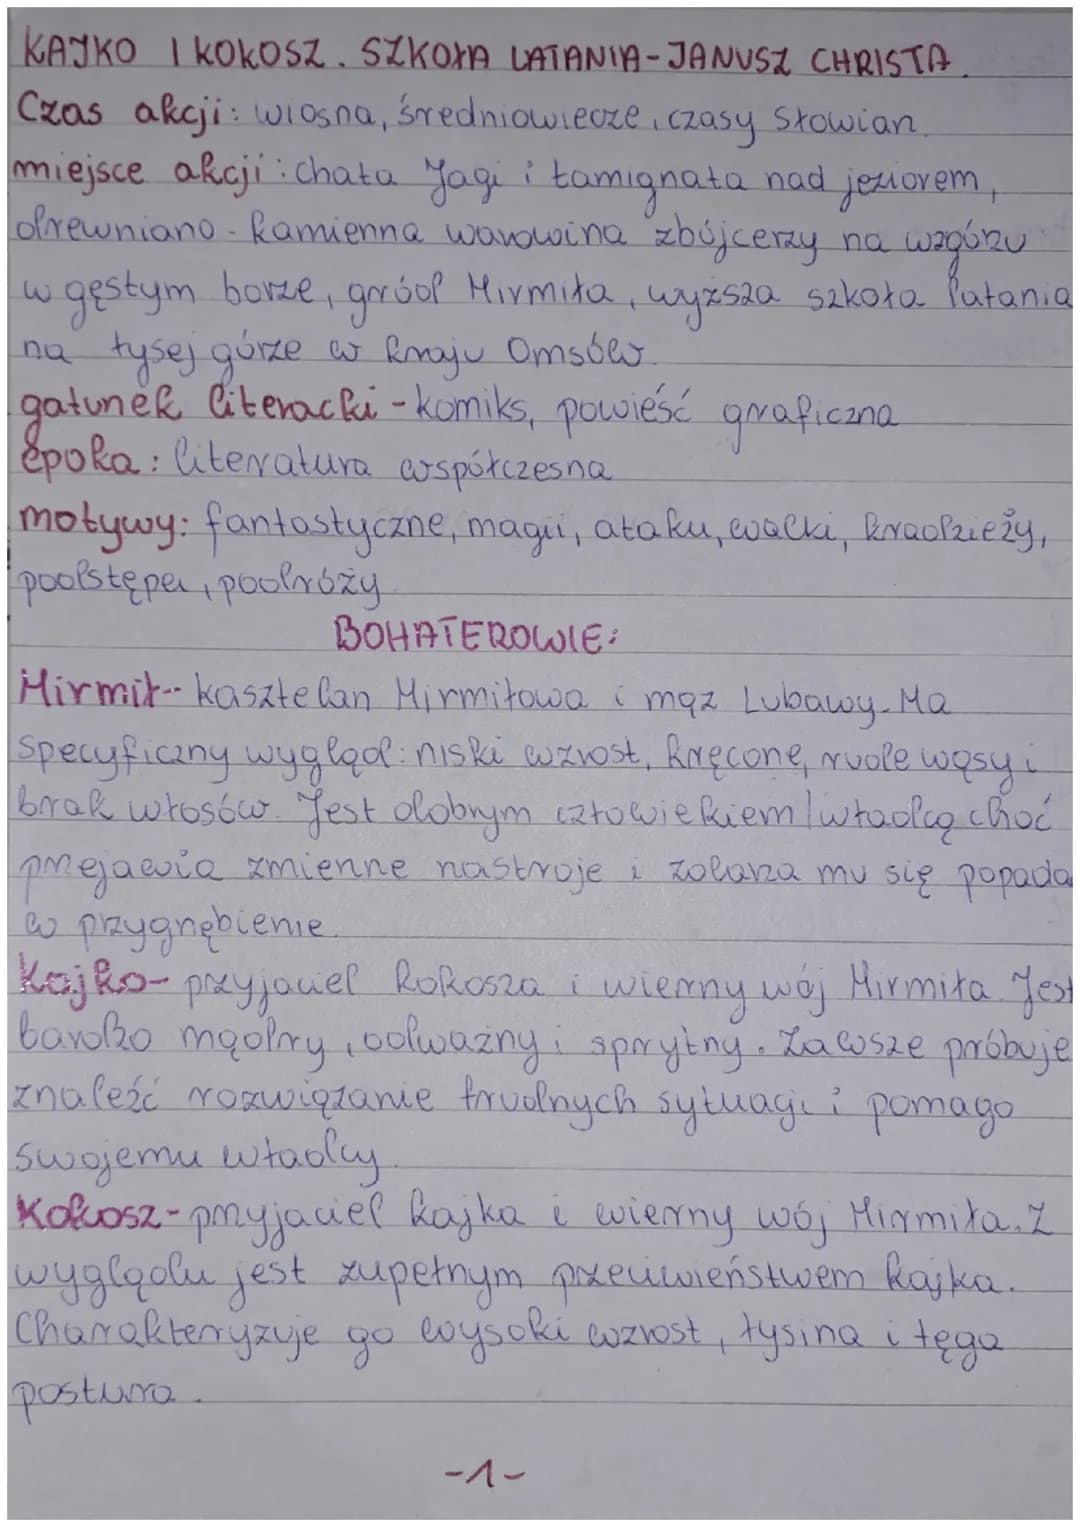 KAJKO I KOKOSZ. SZKOŁA LATANIA - JANUSZ CHRISTA.
Czas akcji: wiosna, średniowiecze, czasy Słowian.
miejsce akcji: chata Jagi i łamignata nad jeziorem,
drewniano-kamienna warowina zbójcerzy na wzgórzu
w gęstym borze, gród Mirmiła, wyższa szkoła latania
na łysej górze w kraju Omsów.
gatunek literacki - komiks, powieść graficzna
epoka: literatura współczesna
motywy: fantastyczne, magii, ataku, walki, kradzieży,
podstępu, podróży
BOHATEROWIE:
Mirmił-- kasztelan Mirmiłowa i mąż Lubawy. Ma
specyficzny wygląd: niski wzrost, kręcone, rude wąsy i
brak włosów. Jest dobrym człowiekiem/władcą choć
przejawia zmienne nastroje i zdarza mu się popada
w przygnębienie.
Kajko- przyjaciel Kokosza i wierny wój Mirmiła. Jest
bardzo mądry, odważny i sprytny. Zawsze próbuje
znaleźć rozwiązanie trudnych sytuacji i pomaga
swojemu władcy.
Kokosz- przyjaciel kajka i wierny wój Mirmiła. Z
wyglądu jest zupełnym przeciwieństwem kajka.
Charakteryzuje go wysoki wzrost, łysina i tęga
postura.
-1-